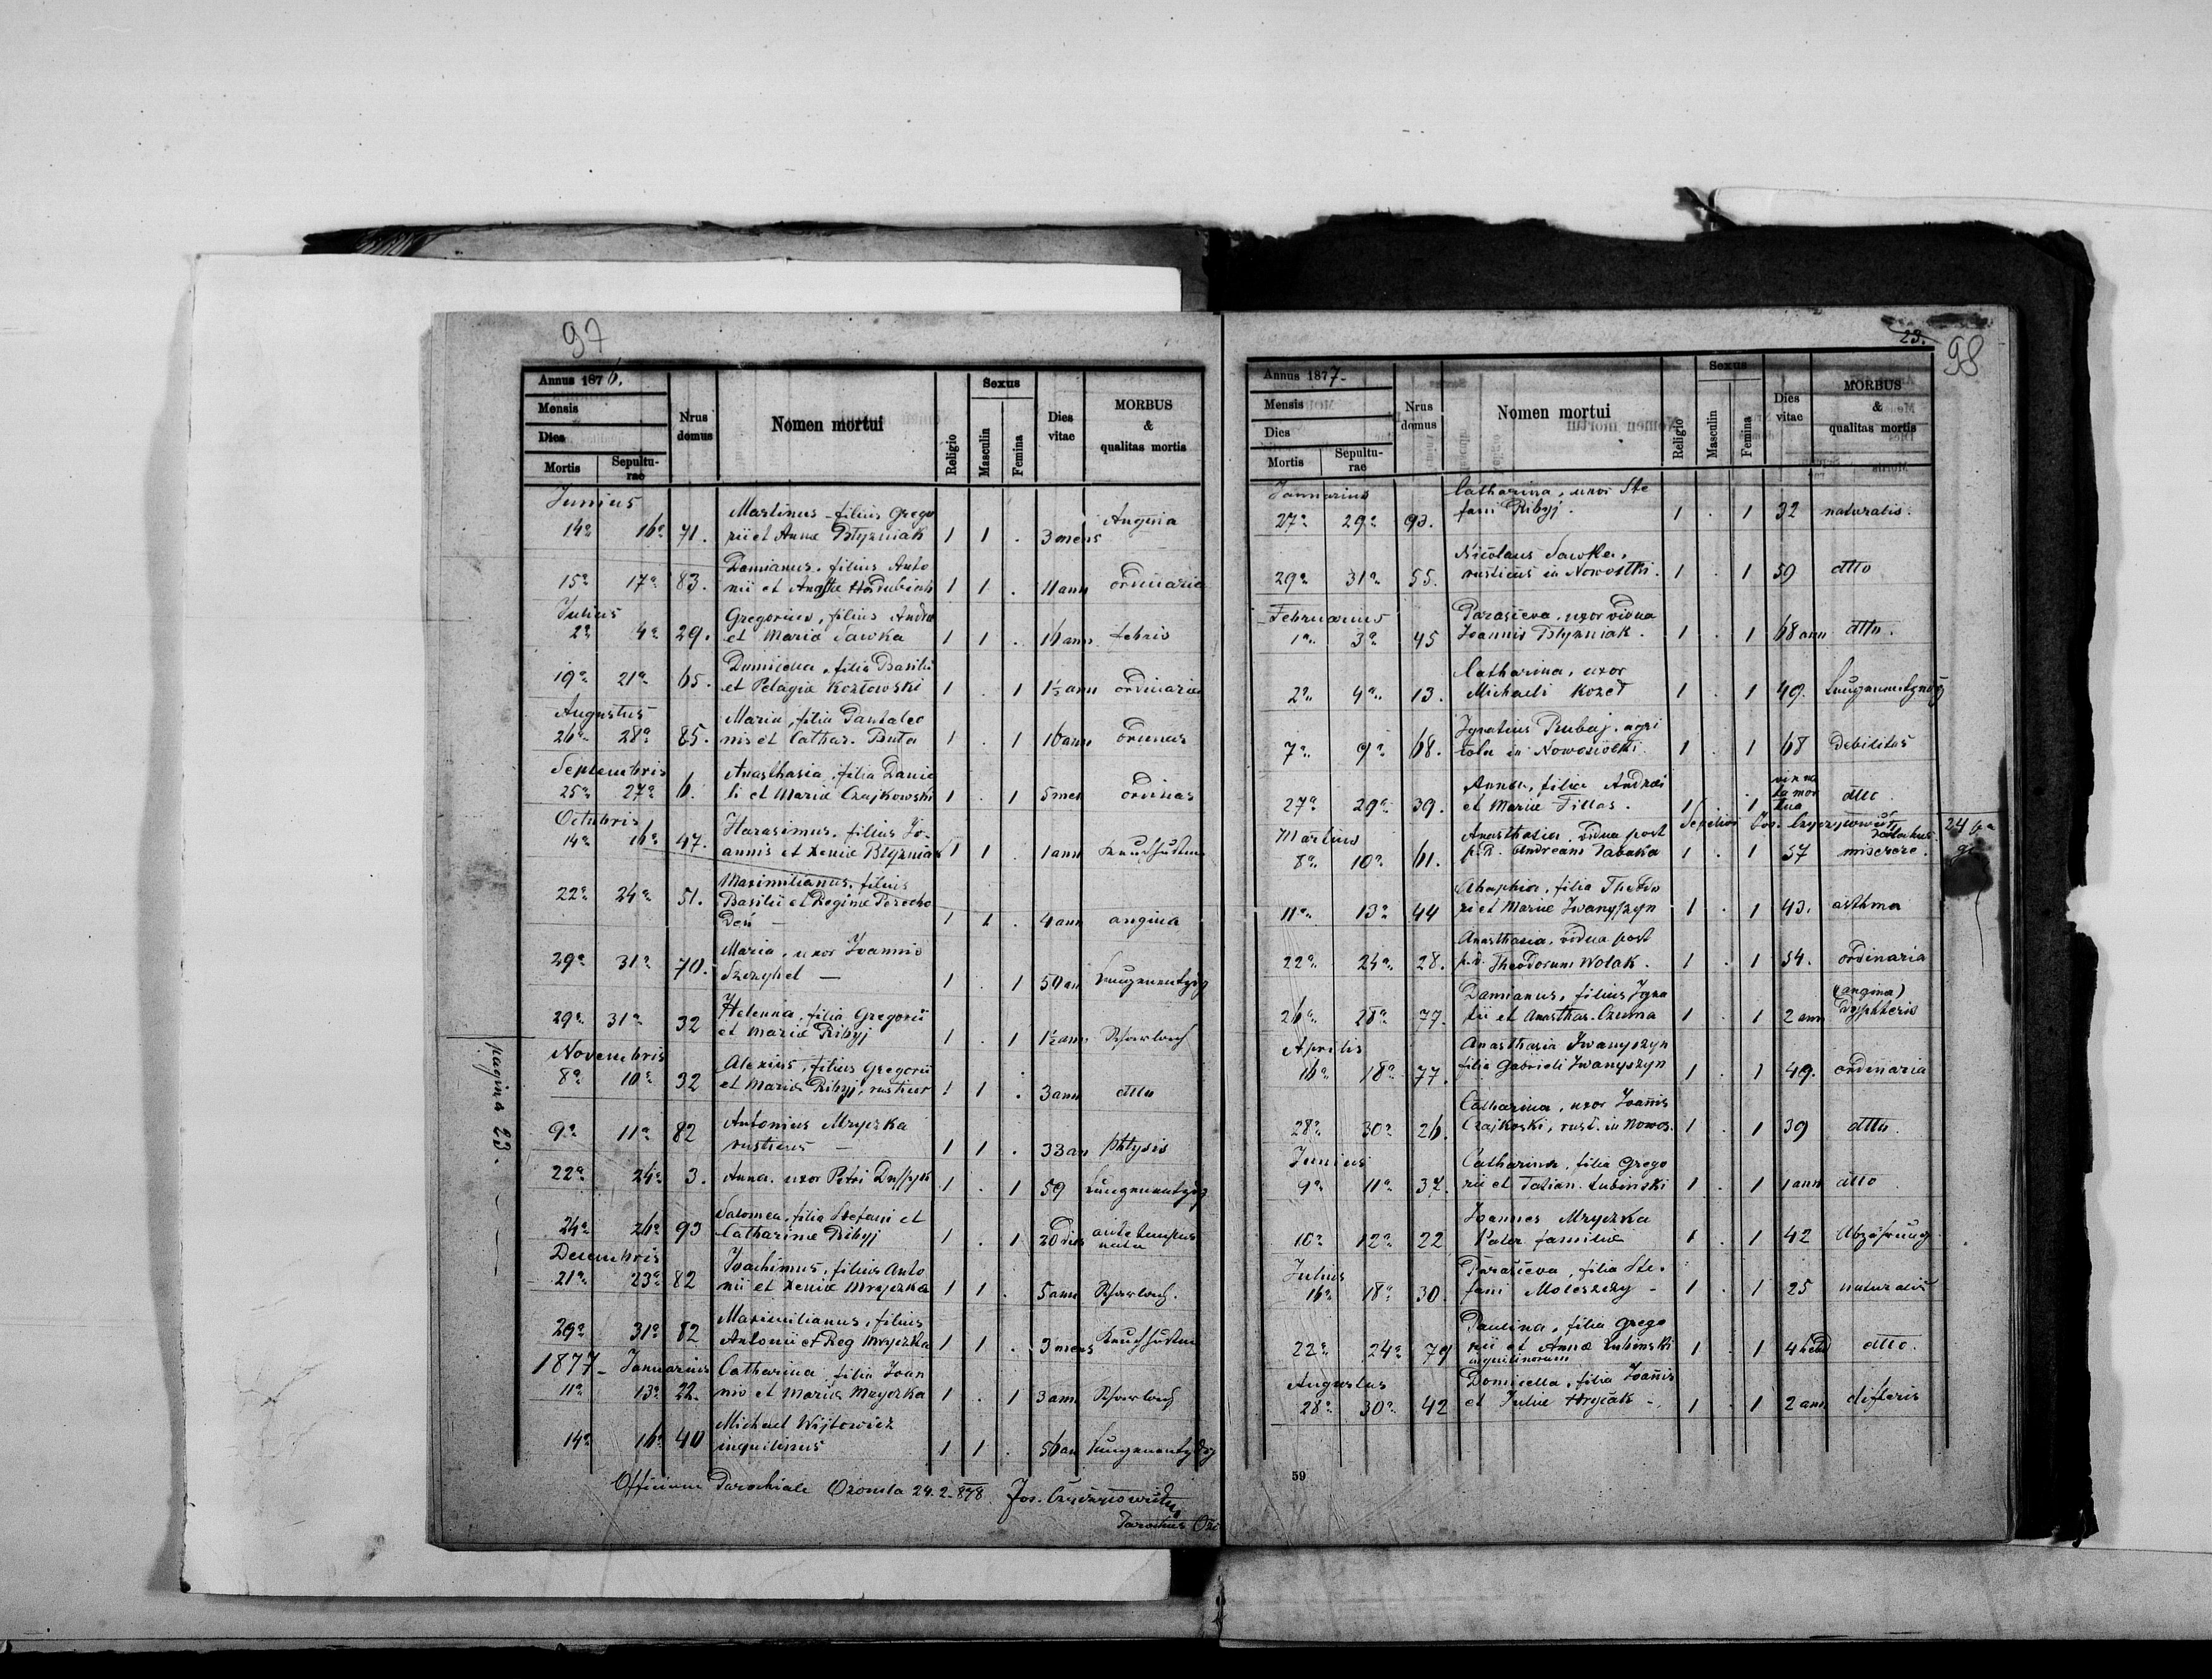 97
Annus 1876.
Mensis
Dies
Mortis Sepultu-
rae
Nrus
domus
Nomen mortui
Religio
Sexus
Masculin
Femina
Dies
vitae
MORBUS
&
qualitas mortis
Junius
Martinus filius Grego
14a 16a 71. rii et Annæ Błyzniak 1 1 . 3 mens Angina
Damianus, filius Anto
15a 17a 83. nii et 1 1 . 11 ann ordinaria
Julius
Gregorius, filius Andreæ
2a 4a 29. et Mariæ Sawka 1 1 . 16 ann febris
Domicella, filia Basilii
19a 21a 65. et Pelagiæ Kozłowski 1 . 1 1½ ann ordinaria
Augustus
Maria, filia Pantaleo
26a 28a 85. nis et Cathar. Buta 1 . 1 16 ann
Septembris
Anasthasia, filia Danie
25a 27a 6. li et Mariæ Czajkowski 1 . 1 5 men
Octobris
Harasimus, filius Jo-
14a 16a 47. annis et Xeniæ Błyzniak 1 1 . 1 ann Keuchhusten
Maximilianus, filius
22a 24a 51. Basilii et Reginæ Perecho
deń — 1 1 . 4 ann angina
Maria, uxor Joannis
29a 31a 70. — 1 . 1 50 an Lungenentzdg
Helenna, filia Gregorii
29a 31a 32 et Mariæ Ribyj 1 . 1 1½ ann Scharlach
Novembris
Alexius, filius Gregorii
8a 10a 32 et Mariæ Ribyj, 1 1 . 3 ann dtto
Antonius Mryczka
9a 11a 82 rusticus — 1 1 . 33 an phtysis
22a 24a 3. Anna, uxor Petri 1 . 1 59 Lungenentzdg
Salomea, filia Stefani et
24a 26a 93 Catharinæ Ribyj 1 . 1 20 dies ante tempus
nata
Decembris
Joachimus, filius Anto
21a 23a 82 nii et Xeniæ Mryczka 1 1 . 5 ann Scharlach.
Maximilianus, filius
29a 31a 82 Antonii et Reg Mryczka 1 1 . 3 mens Keuchhusten
1877 – Januarius Catharina, filia Joan
11a 13a 22. nis et Mariæ Mryczka 1 . 1 3 ann Scharlach
Michael Wójtowicz
14a 16a 40 inquilinus 1 1 . 56 an Lungenentzdg
pagina 23.
Officium Parochiale Ozomla 24.2.878. Jos.
Parochus
23.
98
Annus 1877.
Mensis
Dies
Mortis Sepultu-
rae
Nrus
domus
Nomen mortui
Religio
Sexus
Masculin
Femina
Dies
vitae
MORBUS
&
qualitas mortis
Januarius
Catharina, uxor Ste
27a 29a 93. fani Ribyj. 1 . 1 32 naturalis.
Nicolaus Sawka,
29a 31a 55. rusticus in 1 . 1 59 dtto
Februarius
Parasceva, uxor vidua
1a 3a 45 Joannis Błyzniak. 1 . 1 68 ann dtto.
Catharina, uxor
2a 4a 13. Michaeli Kozeł 1 . 1 49. Lungenentzndg
Ignatius agri
7a 9a 68. cola in 1 . 1 68 debilitas
Anna, filia Andreæ
27a 29a 39. et Mariæ Fillas. 1 . 1 vix na
ta mor
tua dtto.
Sepelivi Jos.
Martius
Anasthasia, vidua post
8a 10a 61. p.d. Andream Tabaka 1 . 1 57 miserere.
Ahaphia, filia Theodo
11a 13a 44 ri et Mariæ Iwanyszyn 1 . 1 43. asthma
Anasthasia, vidua post
22a 24a 28. p.d. Theodorum Wolak. 1 . 1 54. ordinaria
Damianus, filius Igna
26a 28a 77. tii et Anasthas. Czuma 1 . 1 2 ann (angina)
dyphteris
Aprilis
Anasthasia Iwanyszyn
16a 18a 77. filia Gabrieli Iwanyszyn 1 . 1 49. ordinaria
Catharina, uxor Joannis
28a 30a 26. Czajkoski, rust. in Nowos. 1 . 1 39 dtto.
Junius
Catharina, filia Grego
9a 11a 37. rii et Tatian. Lubinski 1 . 1 1 ann dtto
Joannes Mryczka
10a 12a 22 Pater familiæ 1 . 1 42 Abzehrung
Julius
Parasceva, filia Ste.
16a 18a 30. fani Moleszczy - 1 . 1 25 naturalis
Paulina, filia Grego
22a 24a 79 rii et Annæ Lubinski
inquilinorum 1 . 1 4 hebd dtto.
Augustus
Domicella, filia Joannis
28a 30a 42 et Juliæ Hryciak -. 1 . 1 2 ann difteris
59